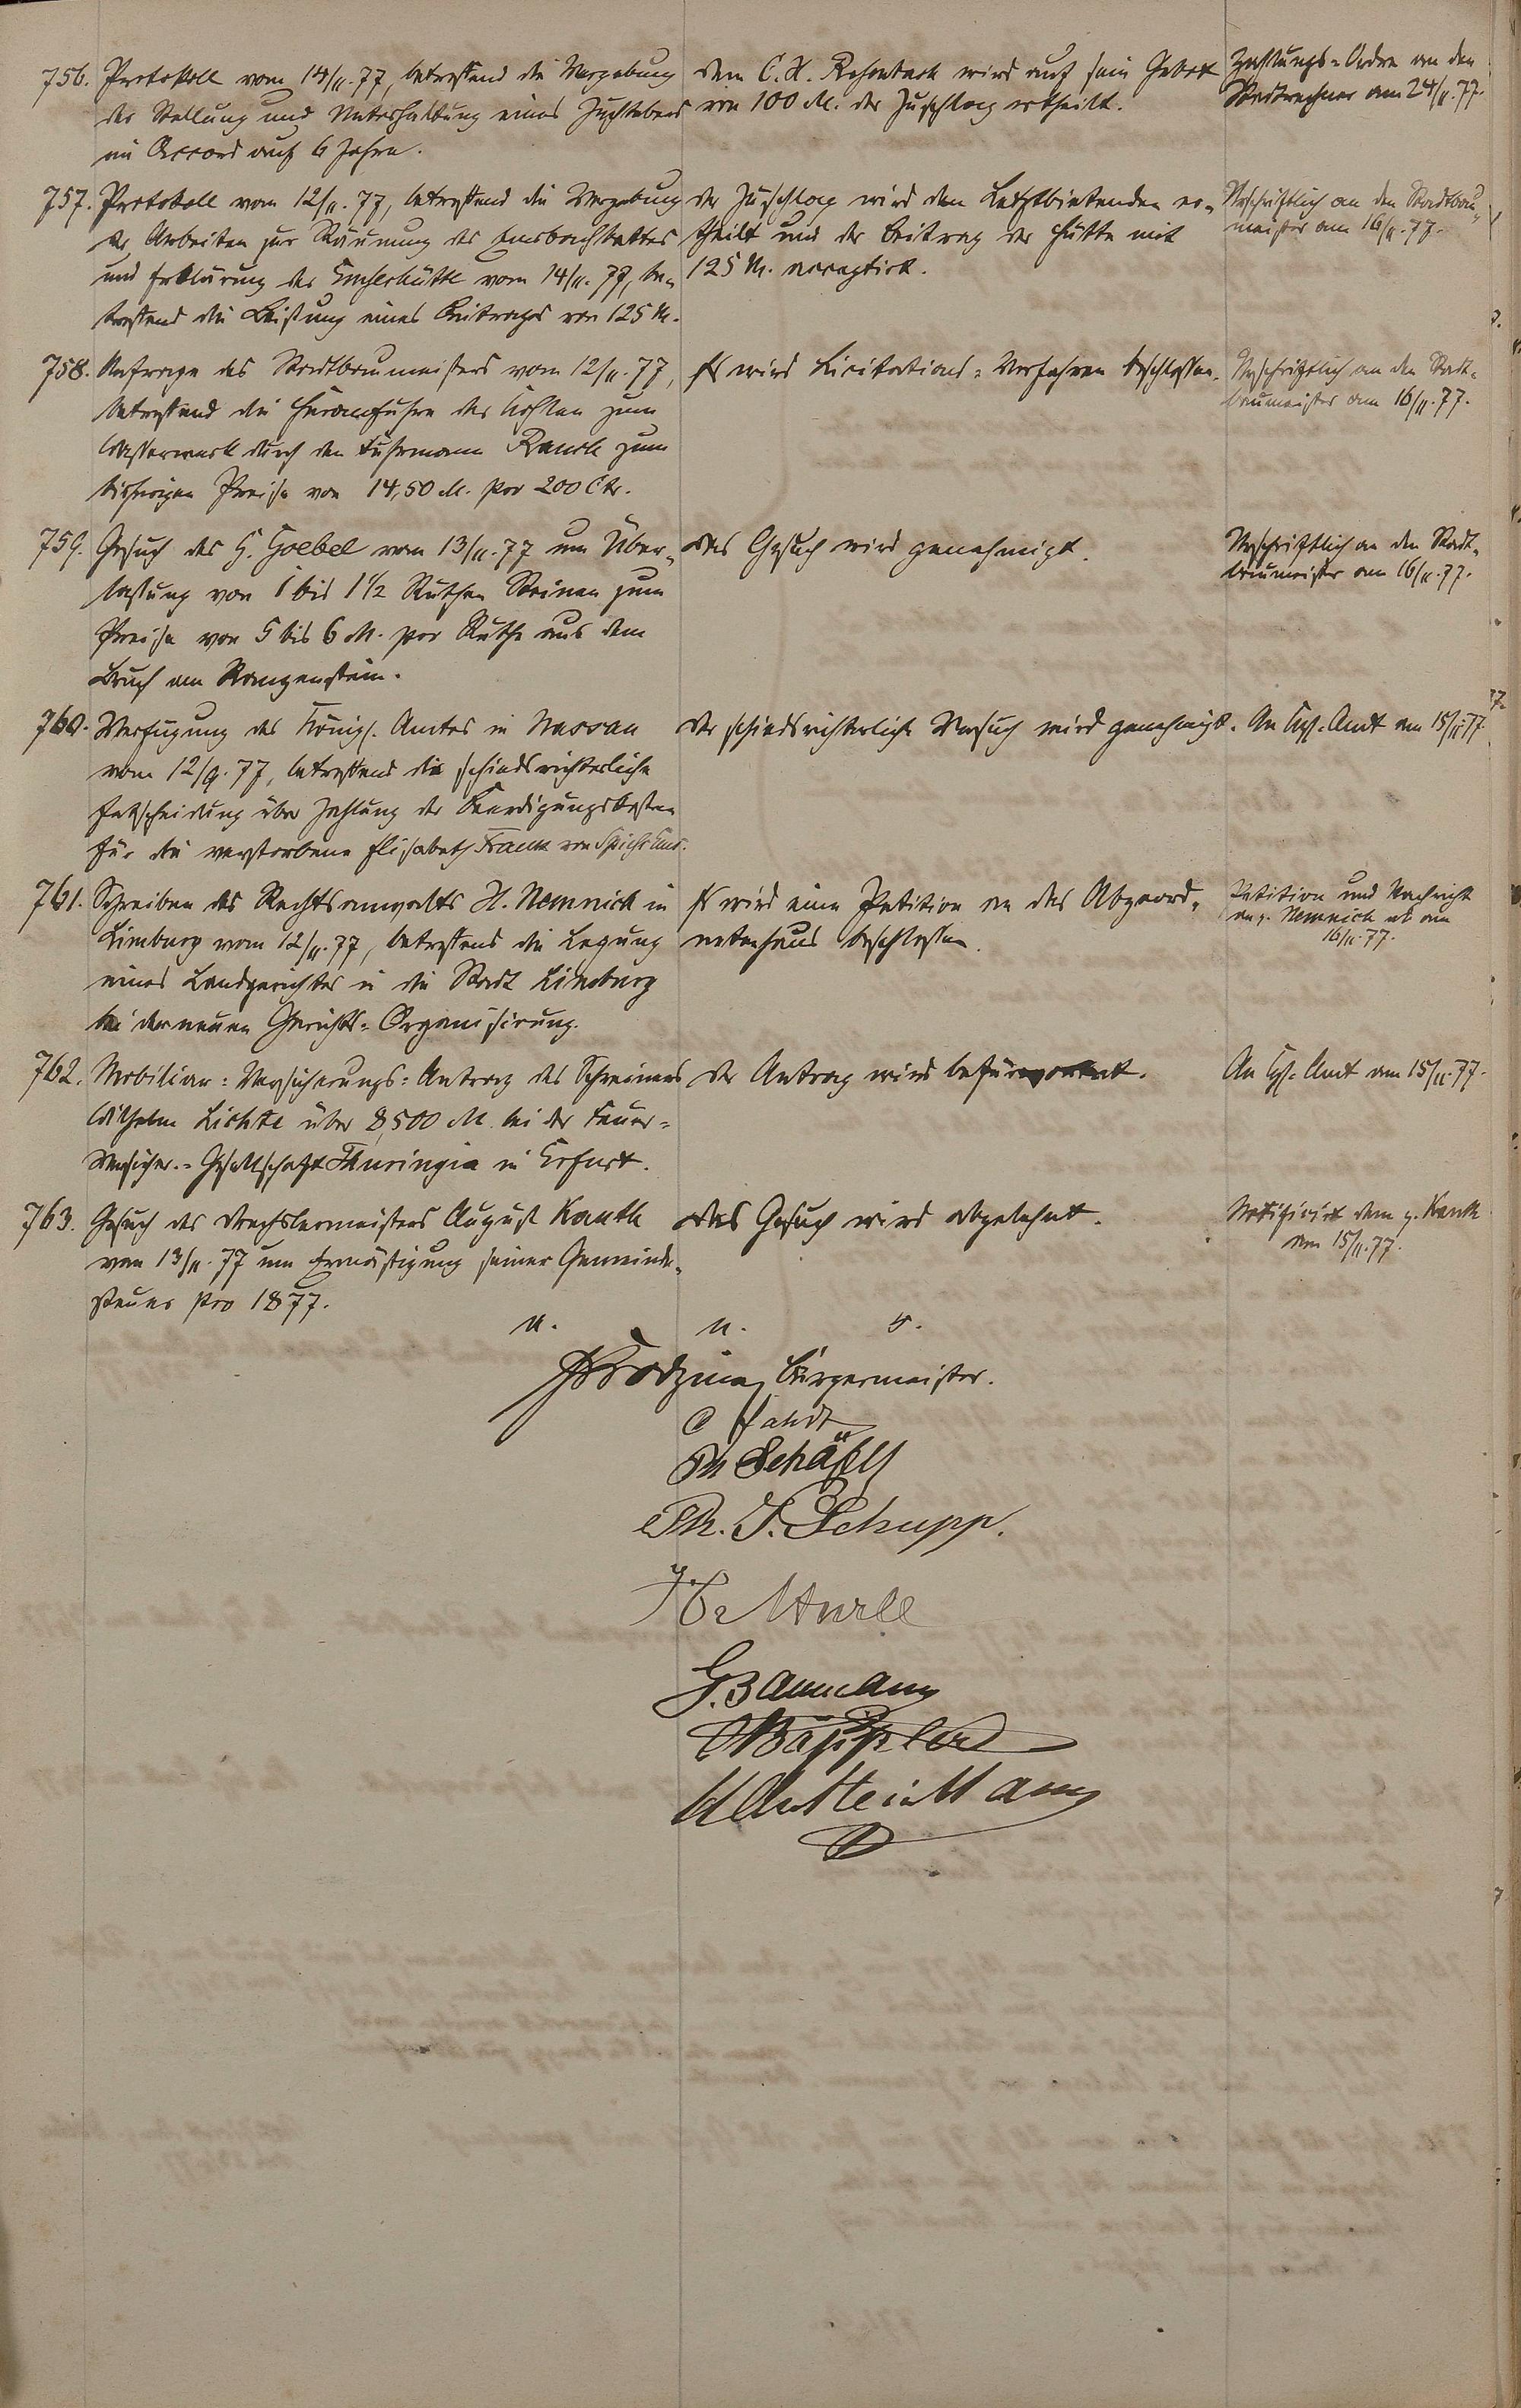 756. Protokoll vom 14/11. 77, betreffend die Vergebung
der Stellung und Unterhaltung eines Zuchtebers
im Accord auf 6 Jahre.
Dem C. H. wird auf sein Gebot
von 100 M. der Zuschlag ertheilt.
Zahlungs-Ordre an den
Stadtrechner am 24/11. 77.
757. Protokoll vom 12/11. 77, betreffend die Vergebung
der Arbeiten zur Räumung des Emsbachbettes
und Erklärung der Emserhütte vom 14/11. 77, be-
treffend die Leistung eines Beitrages von 125 M.
Der Zuschlag wird dem Letztbietenden er-
theilt und der Beitrag der Hütte mit
125 M. acceptirt.
Urschriftlich an den Stadtbau-
meister am 16/11. 77.
758. Anfrage des Stadtbaumeisters vom 12/11. 77,
betreffend die Heranfuhre der Kohlen zum
Wasserwerk durch den Fuhrmann zum
bisherigen Preise von 14,50 M. pro 200 Ctr.
Es wird Licitations-Verfahren beschlossen.
Urschriftlich an den Stadt-
baumeister am 16/11. 77.
759. Gesuch des H. Goebel vom 13/11. 77 um Über-
lassung von 1 bis 1 1/2 Ruthen Steinen zum
Preise von 5 bis 6 M. pro Ruthe aus dem
Bruch am
Das Gesuch wird genehmigt.
Urschriftlich an den Stadt-
baumeister am 16/11. 77.
760. Verfügung des Königl. Amtes in Nassau
vom 12/9. 77, betreffend die schiedsrichterliche
Entscheidung über Zahlung der Beerdigungskosten
für die verstorbene Elisabeth Frank von
Der schiedsrichterliche Versuch wird genehmigt.
An Kgl. Amt am 15/11. 77
761. Schreiben des Rechtsanwalts H. Nemnich in
Limburg vom 12/11. 77, betreffend die Legung
eines Landgerichtes in die Stadt Limburg
bei der neuen Gerichts-Organisirung.
Es wird eine Petition an das Abgeord-
netenhaus beschlossen.
Petition und Nachricht
an H. Nemnich ab am
16/11. 77.
762. Mobiliar-Versicherungs-Antrag des Schreiners
Wilhelm Lichte über 8,500 M. bei der Feuer-
Versicher.-Gesellschaft Thuringia in Erfurt.
Der Antrag wird befürwortet.
An Kgl. Amt am 15/11. 77.
763. Gesuch des Drechslermeisters August Kauth
vom 13/11. 77 um Ermäßigung seiner Gemeinde-
steuer pro 1877.
Das Gesuch wird abgelehnt.
Notifizirt dem H. Kauth
am 15/11. 77.
Bürgermeister.
Ph Schäfer
Ph. J. Schupp.
G. Baumann